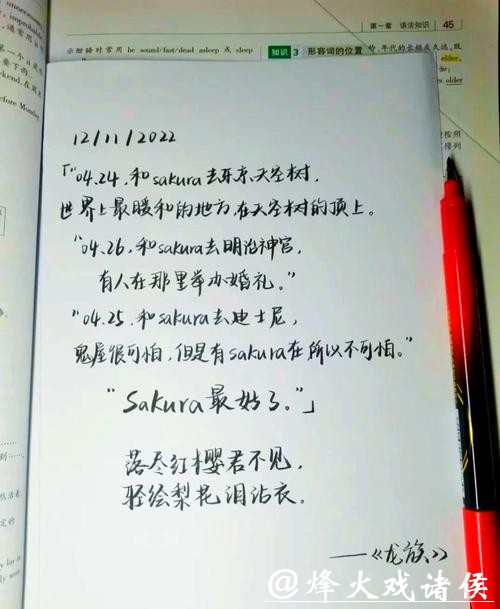 第一章 语法知识 45
示酣睡时常用 be sound/fast/dead asleep 或 sleep
知识 3 形容词的位置
12/11/2022
「“04.24,和sakura去东京天空树,
世界上最暖和的地方,在天空树的顶上。
“04.26,和sakura去明治神宫,
有人在那里举办婚礼。”
“04.25,和sakura去迪士尼,
鬼屋很可怕,但是有sakura在所以不可怕。”
“Sakura最好了。”」
落尽红樱君不见,
轻绘梨花泪沾衣。
——《龙族》
@烽火戏诸侯